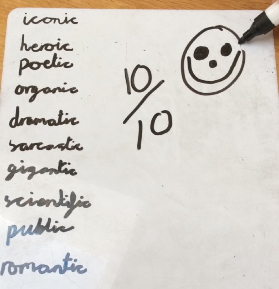 iconic
heroic
poetic
organic
dramatic
sarcastic
gigantic
scientific
public
romantic
10/10